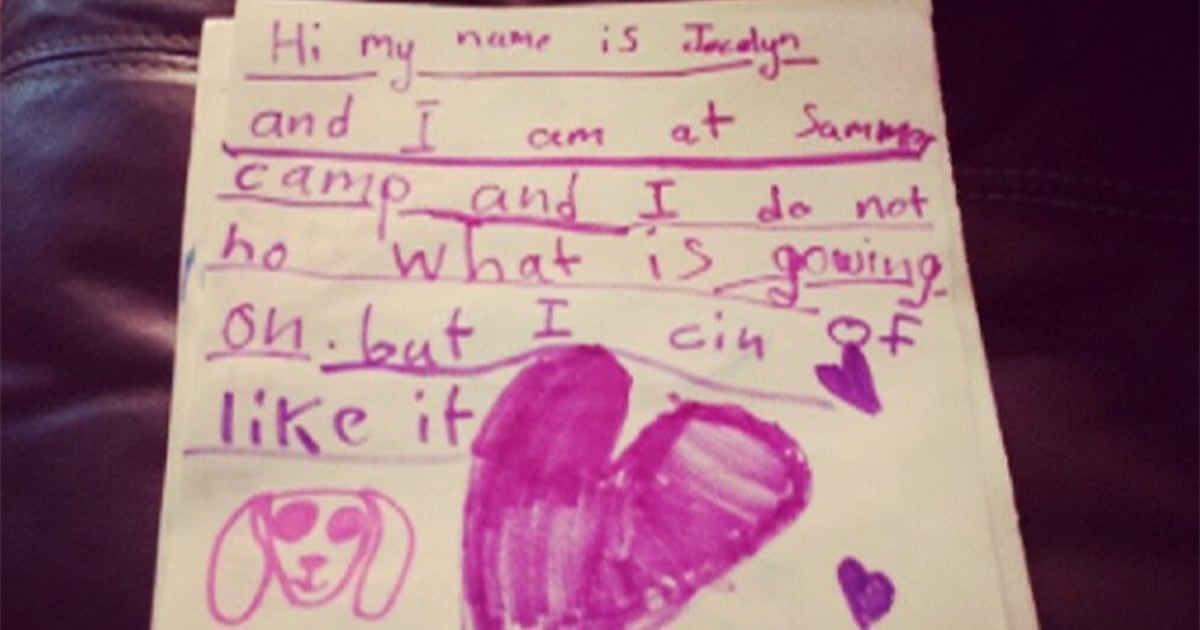 Hi my name is Jocelyn
and I am at Sammer
camp and I do not
ho what is gowing
on. but I cin of
like it